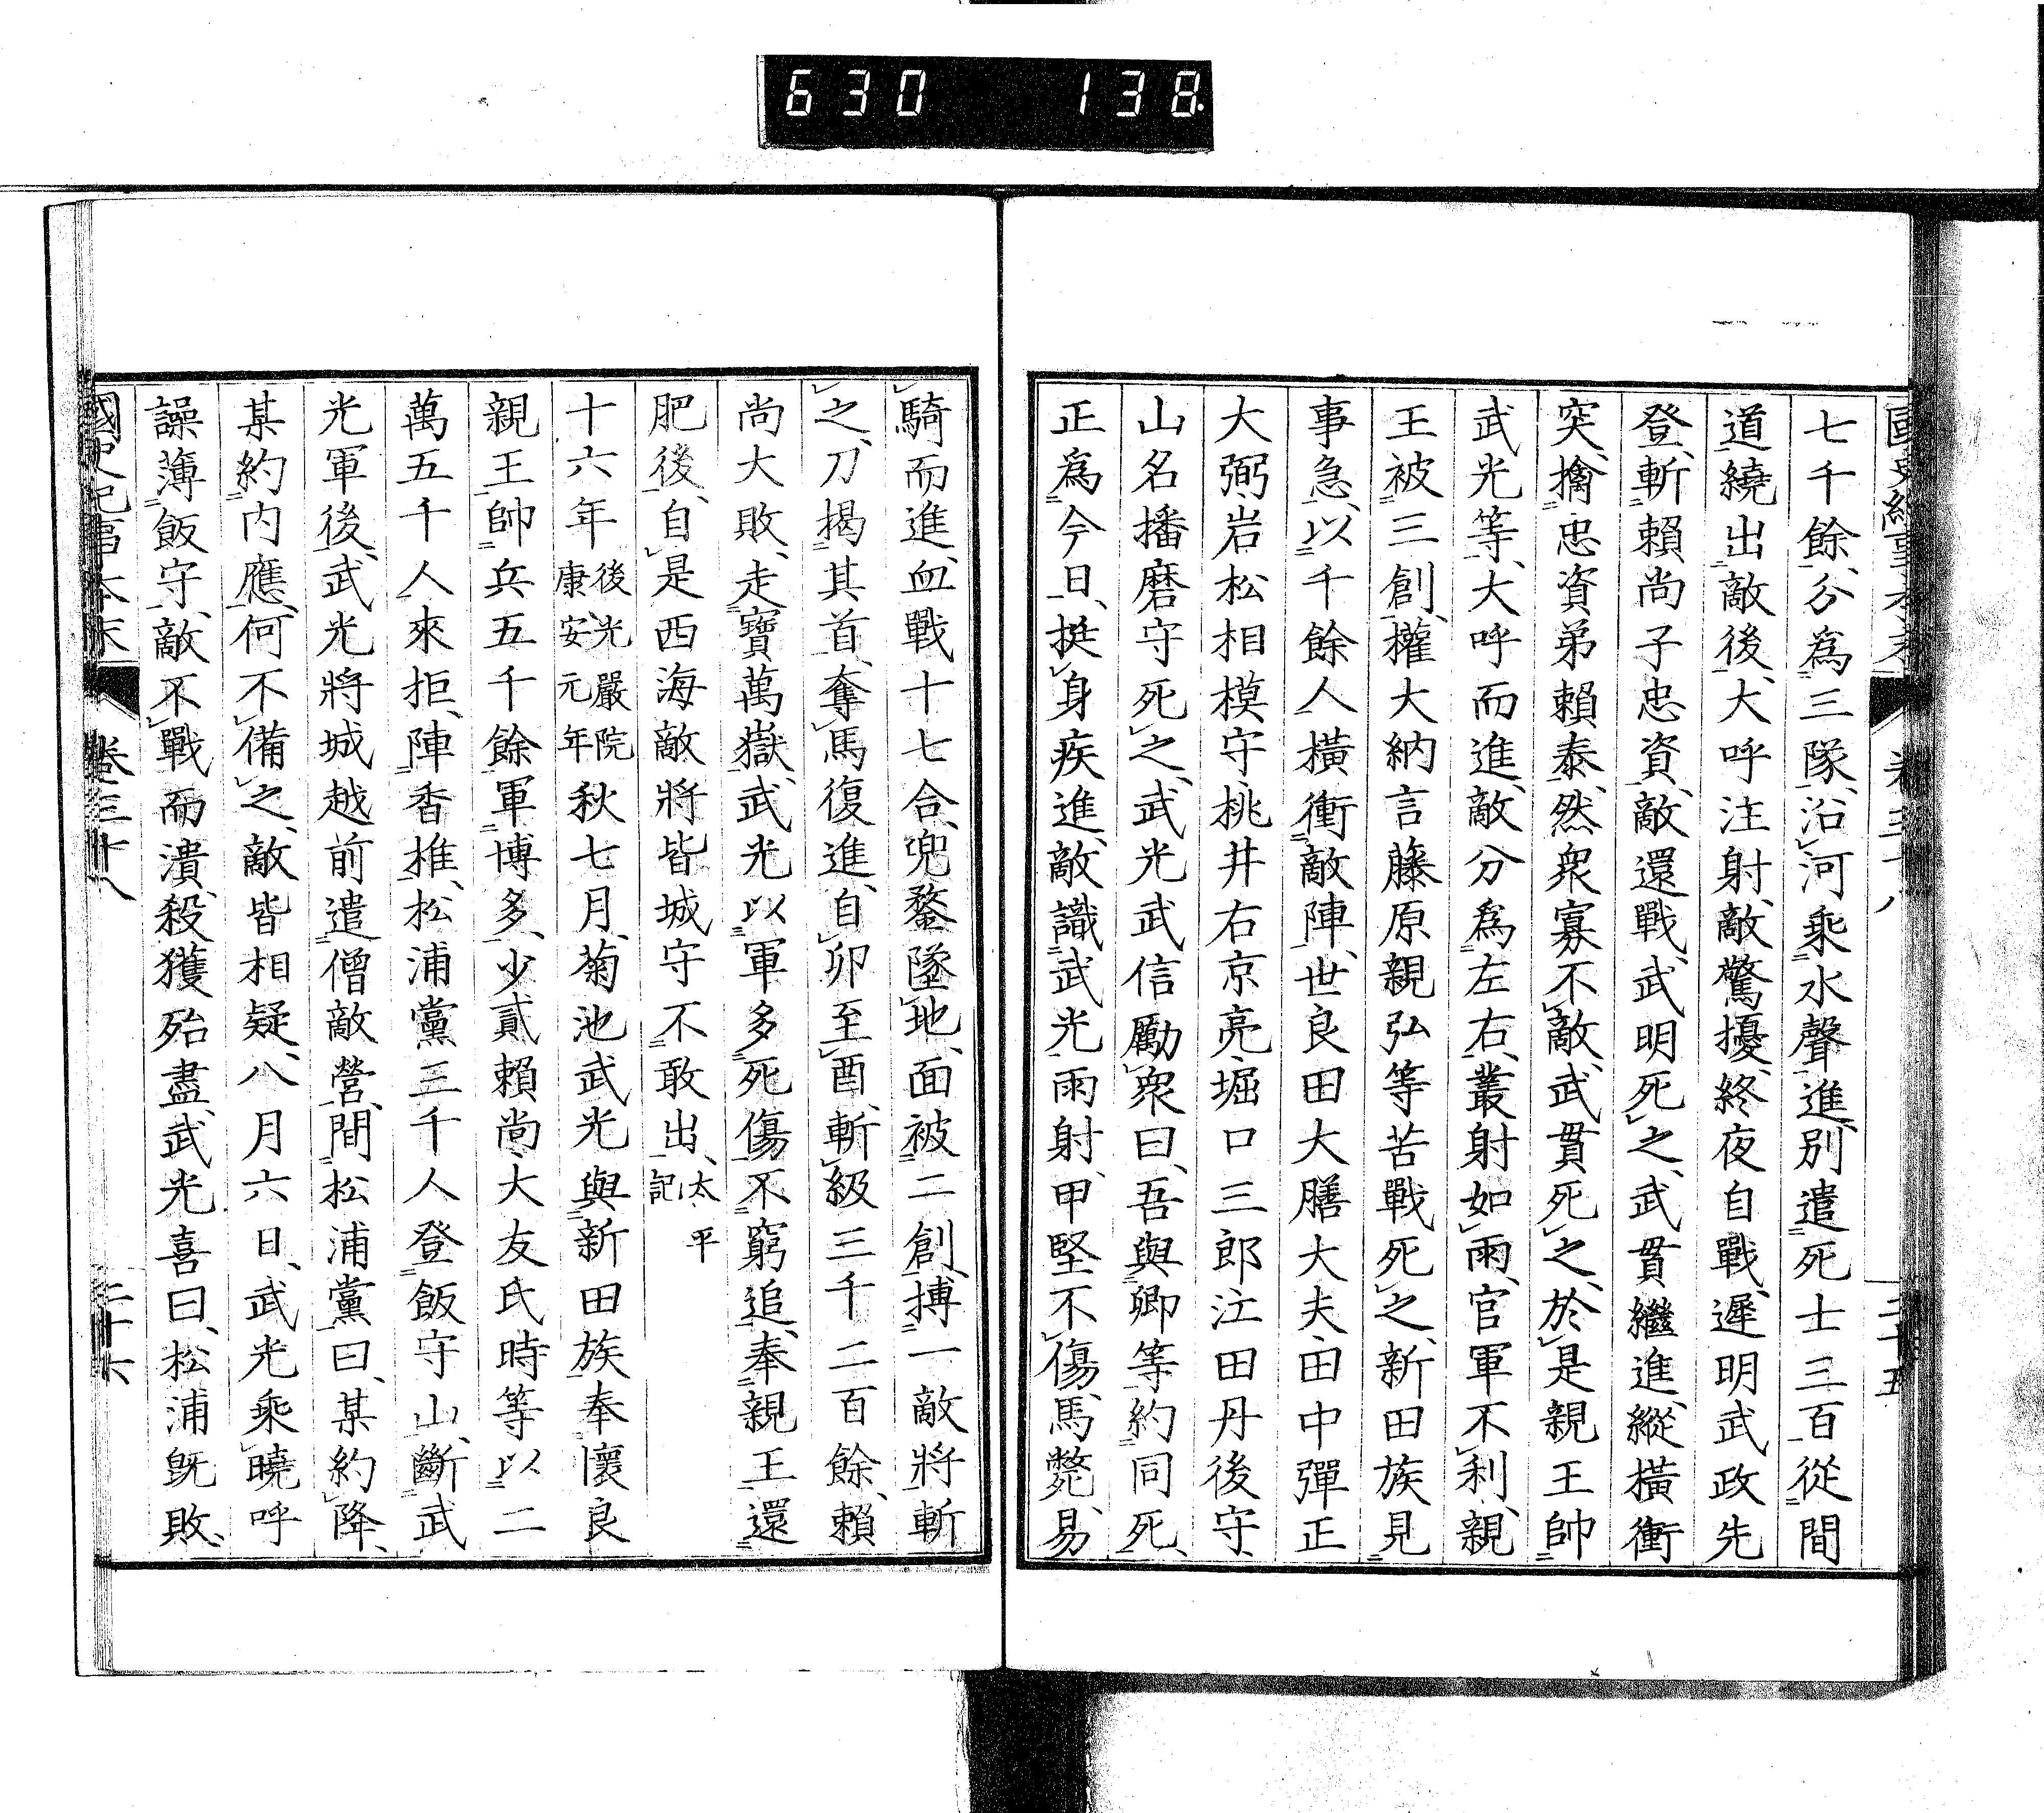 630 138
國史紀事本末 卷三十八 二十五
七千餘、分爲三隊、沿河乘水聲進、別遣死士三百從間
道繞出敵後、大呼注射、敵驚擾、終夜自戰、遲明武政先
登、斬賴尚子忠資、敵還戰、武明死之、武貫繼進、縱橫衝
突、擒忠資弟賴泰、然衆寡不敵、武貫死之、於是親王帥
武光等、大呼而進、敵分爲左右、叢射如雨、官軍不利、親
王被三創、權大納言藤原親弘等苦戰死之、新田族見
事急、以千餘人橫衝敵陣、世良田大膳大夫田中彈正
大弼岩松相模守桃井右京亮堀口三郎江田丹後守
山名播磨守死之、武光武信勵衆曰、吾與卿等約同死、
正爲今日、挺身疾進、敵識武光雨射、甲堅不傷、馬斃、易
騎而進、血戰十七合、兜鍪墜地、面被二創、搏一敵將斬
之、刀揭其首、奪馬復進、自卯至酉、斬級三千二百餘、賴
尚大敗、走寶萬嶽、武光以軍多死傷不窮追、奉親王還
肥後、自是西海敵將皆城守不敢出、太平記
十六年後光嚴院康安元年秋七月、菊池武光與新田族奉懷良
親王帥兵五千餘軍博多、少貳賴尚大友氏時等、以二
萬五千人來拒、陣香推、松浦黨三千人登飯守山、斷武
光軍後、武光將城越前遣僧敵營、間松浦黨曰、某約降、
某約内應、何不備之、敵皆相疑、八月六日、武光乘曉呼
譟薄飯守、敵不戰而潰、殺獲殆盡、武光喜曰、松浦既敗、
國史紀事本末 卷三十八 二十六